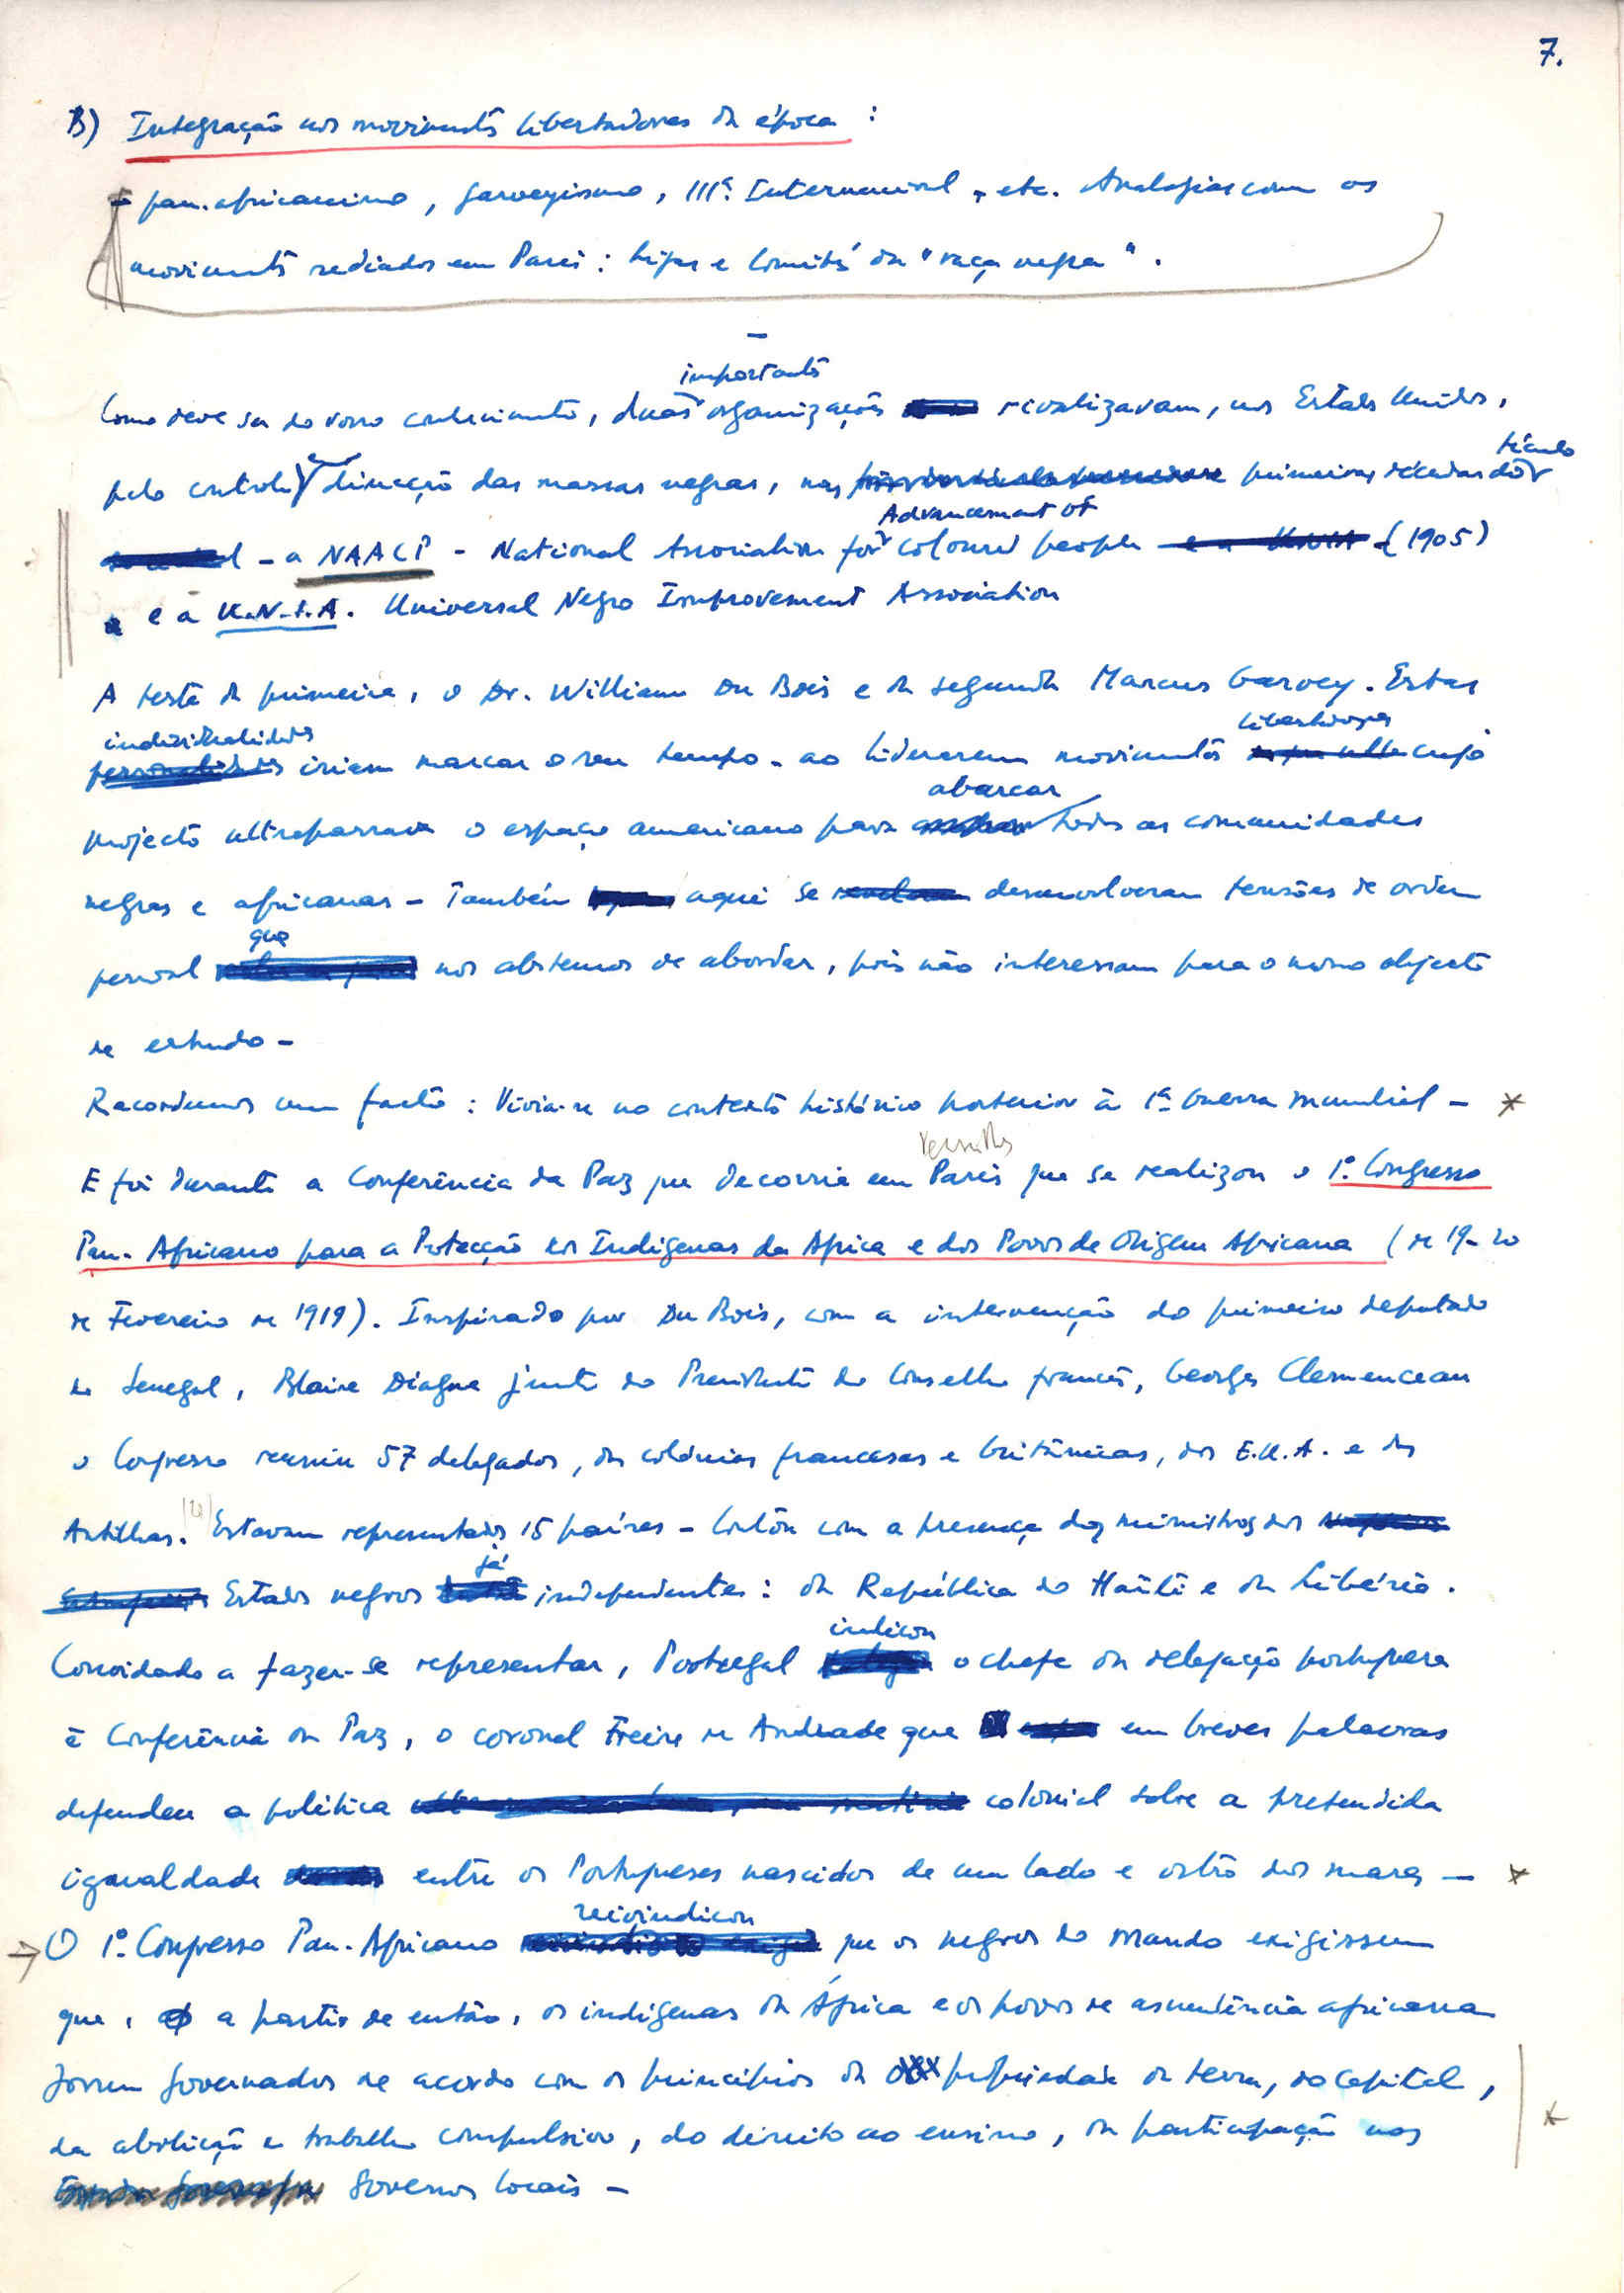 7.
B) Integração nos movimentos libertadores da época :
- pan-africanismo, garveyismo, IIIª Internacional, etc. Analogias com os
movimentos sediados em Paris : Ligas e Comités da "raça negra".
-
importantes
Como deve ser do vosso conhecimento, duas organizações rivalizavam, nos Estados Unidos,
século
pelo controle e direcção das massas negras, nas primeiras décadas do
Advancement of
- a NAACP - National Association for coloured people (1905)
e a U.N.I.A. Universal Negro Improvement Association
A testa da primeira, o Dr. William Du Bois e da segunda Marcus Garvey. Estas
individualidades libertadores
personalidades iriam marcar o seu tempo - ao liderarem movimentos cujo
abarcar
projecto ultrapassava o espaço americano para todas as comunidades
negras e africanas - Também aqui se desenvolveram tensões de ordem
que
pessoal nos abstemos de abordar, pois não interessam para o nosso objecto
de estudo -
Recordemos um facto : Vivia-se no contexto histórico posterior à 1ª Guerra Mundial - *
Versailles
E foi durante a Conferência da Paz que decorria em Paris que se realizou o 1º. Congresso
Pan-Africano para a Protecção dos Indígenas da Africa e dos Povos de Origem Africana (de 19-20
de Fevereiro de 1919). Inspirado por Du Bois, com a intervenção do primeiro deputado
do Senegal, Blaise Diagne junto do Presidente do Conselho francês, Georges Clemenceau
o Congresso reuniu 57 delegados, das colónias francesas e britânicas, dos E.U.A. e das
Antilhas. Estavam representados 15 países - Contou com a presença dos ministros dos
já
Estados negros independentes : da República do Haïti e da Libéria.
indicou
Convidado a fazer-se representar, Portugal o chefe da delegação portuguesa
à Conferência da Paz, o coronel Freire de Andrade que em breves palavras
defendeu a política colonial sobre a pretendida
igualdade entre os Portugueses nascidos de um lado e outro dos mares - *
reivindicou
→ O 1º. Congresso Pan-Africano que os negros do mundo exigissem
que, a partir de então, os indígenas da África e os povos de ascendência africana
fossem governados de acordo com os princípios da propriedade da terra, do capital,
da abolição e trabalho compulsivo, do direito ao ensino, da participação nos *
Governos locais -